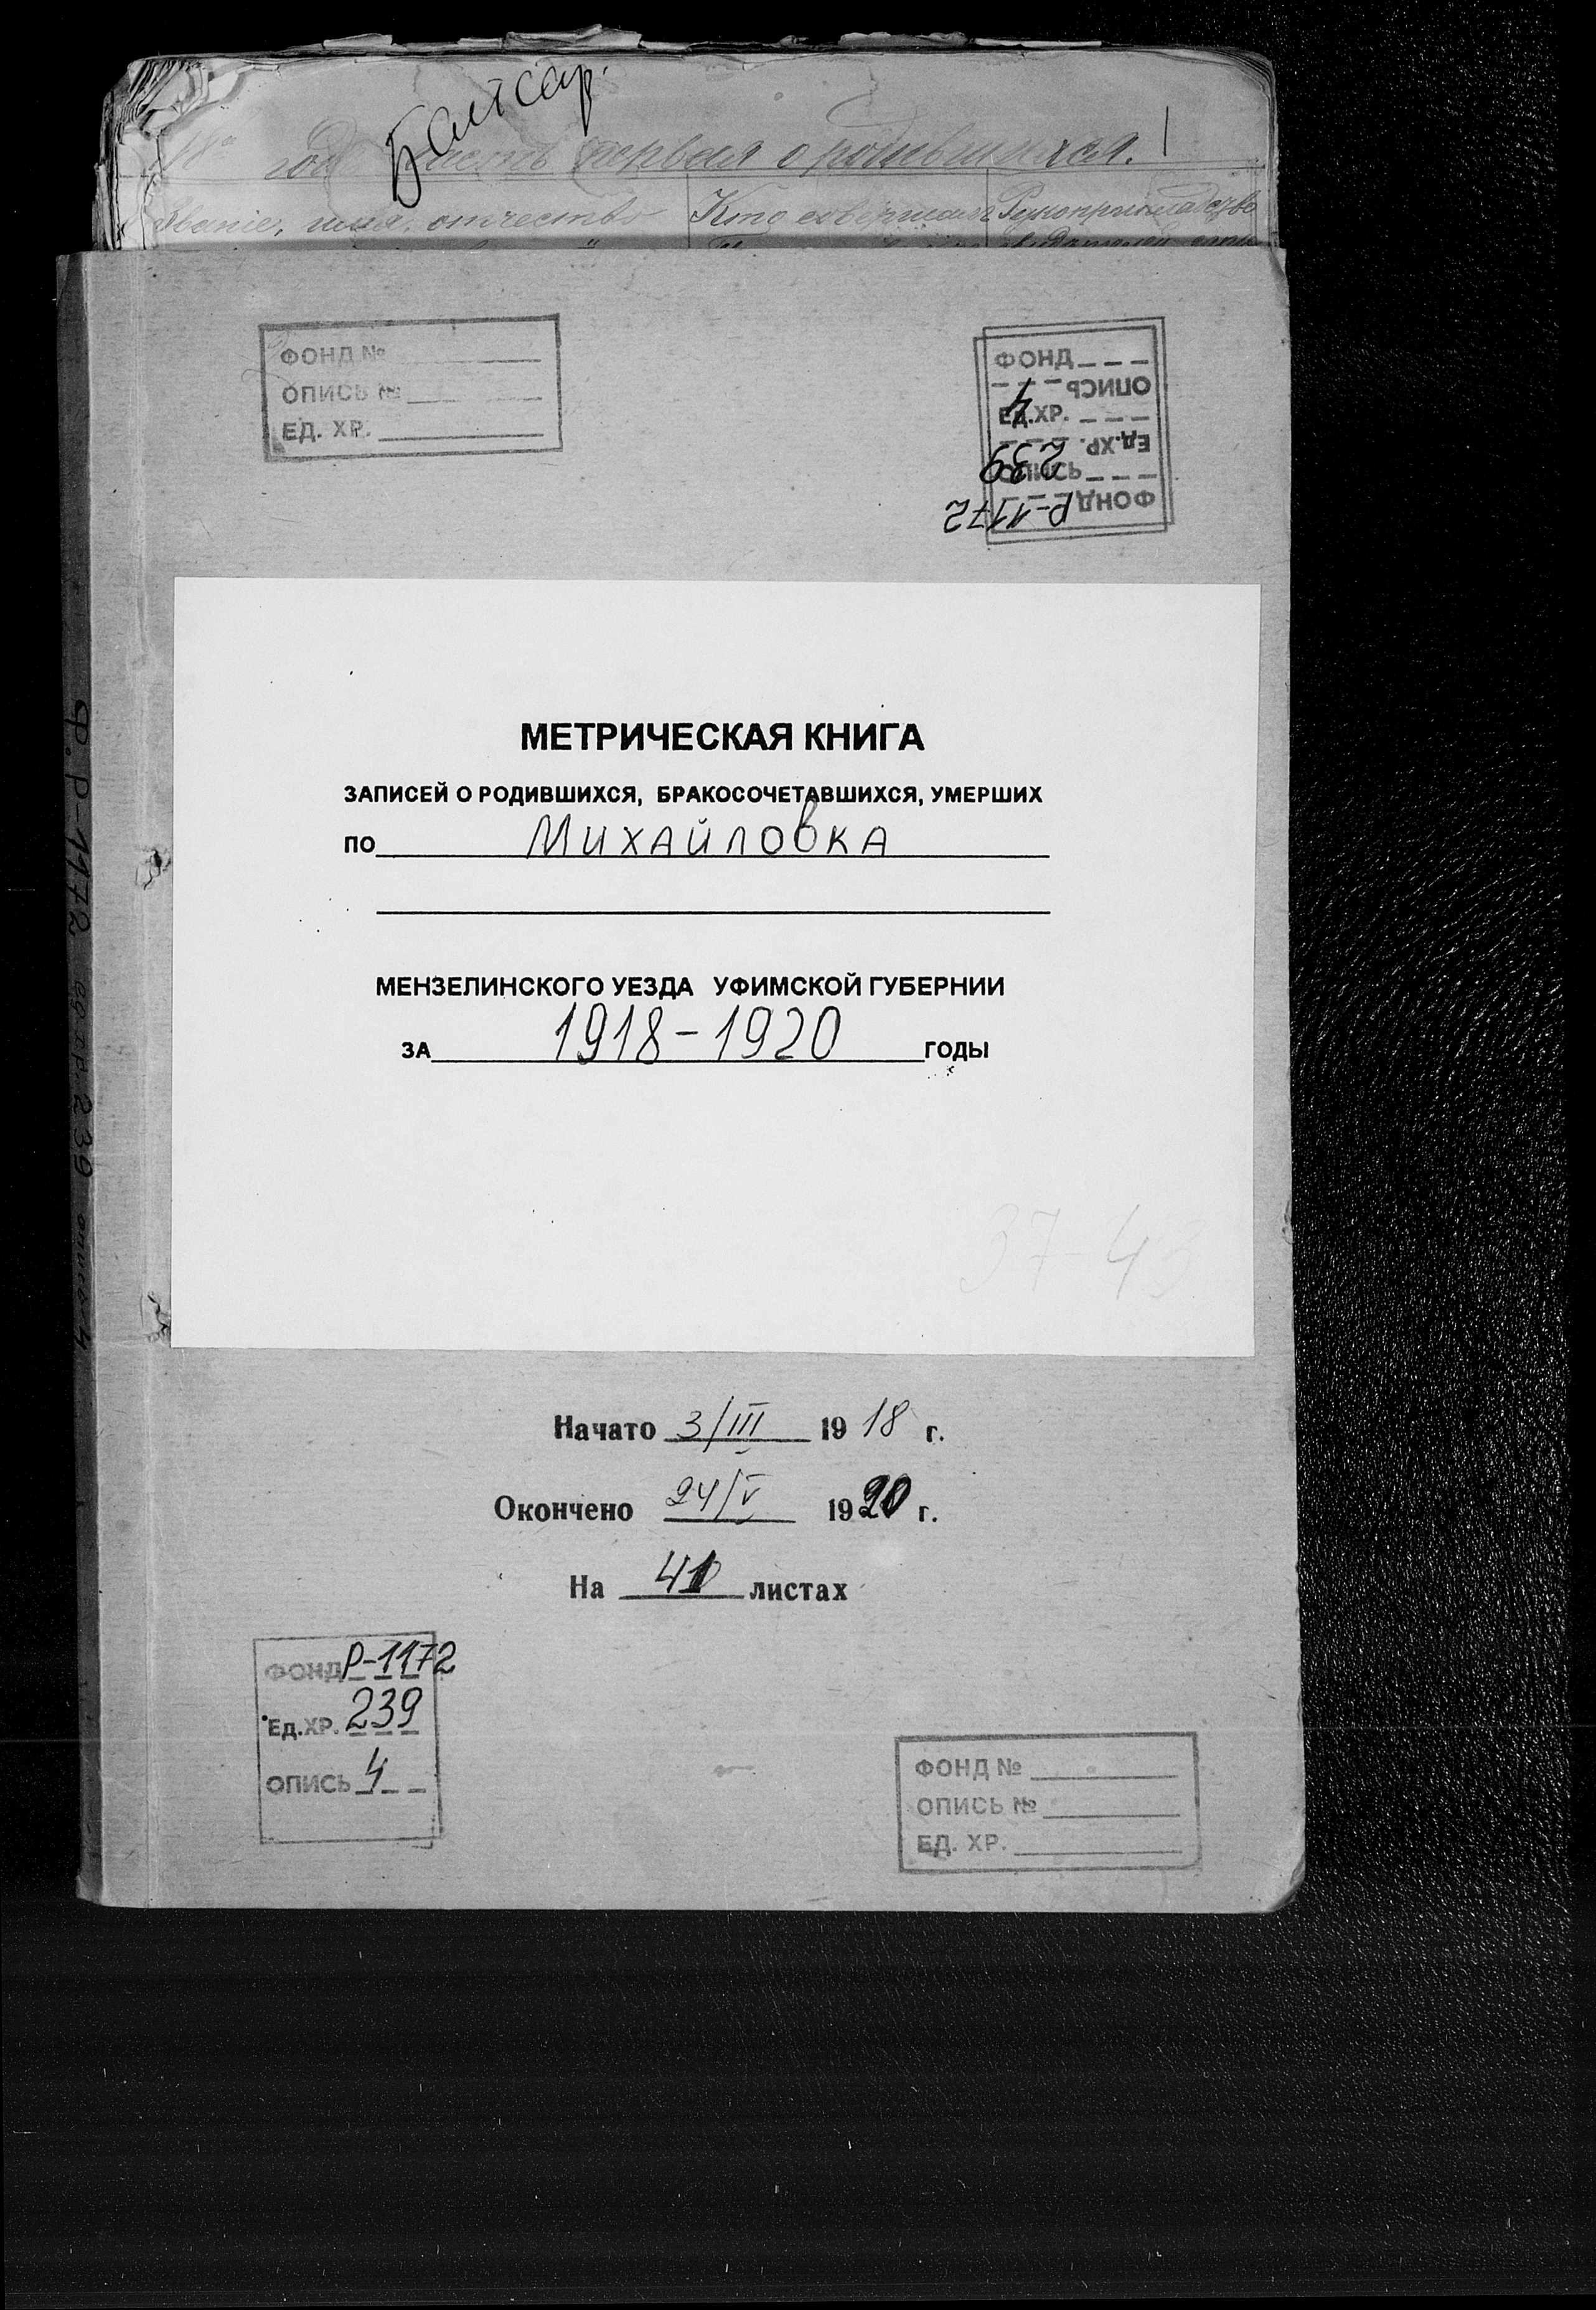 Балтсар.
год часть первая о родившихся. 1
Званіе, имя, отчество Кто совершалъ Рукоприкладство
ФОНД №
ОПИСЬ №
ЕД. ХР.
ФОНД
ОПИСЬ 4
ЕД.ХР.
ЕД.ХР. 239
ОПИСЬ
ФОНД Р-1172
МЕТРИЧЕСКАЯ КНИГА
ЗАПИСЕЙ О РОДИВШИХСЯ, БРАКОСОЧЕТАВШИХСЯ, УМЕРШИХ
ПО Михайловка
МЕНЗЕЛИНСКОГО УЕЗДА УФИМСКОЙ ГУБЕРНИИ
ЗА 1918-1920 ГОДЫ
37-43
Начато 3/III 1918 г.
Окончено 24/V 1920 г.
На 41 листах
ФОНД Р-1172
ЕД.ХР. 239
ОПИСЬ 4
ФОНД №
ОПИСЬ №
ЕД. ХР.
Ф. Р-1172 ед.хр. 239 опись 4